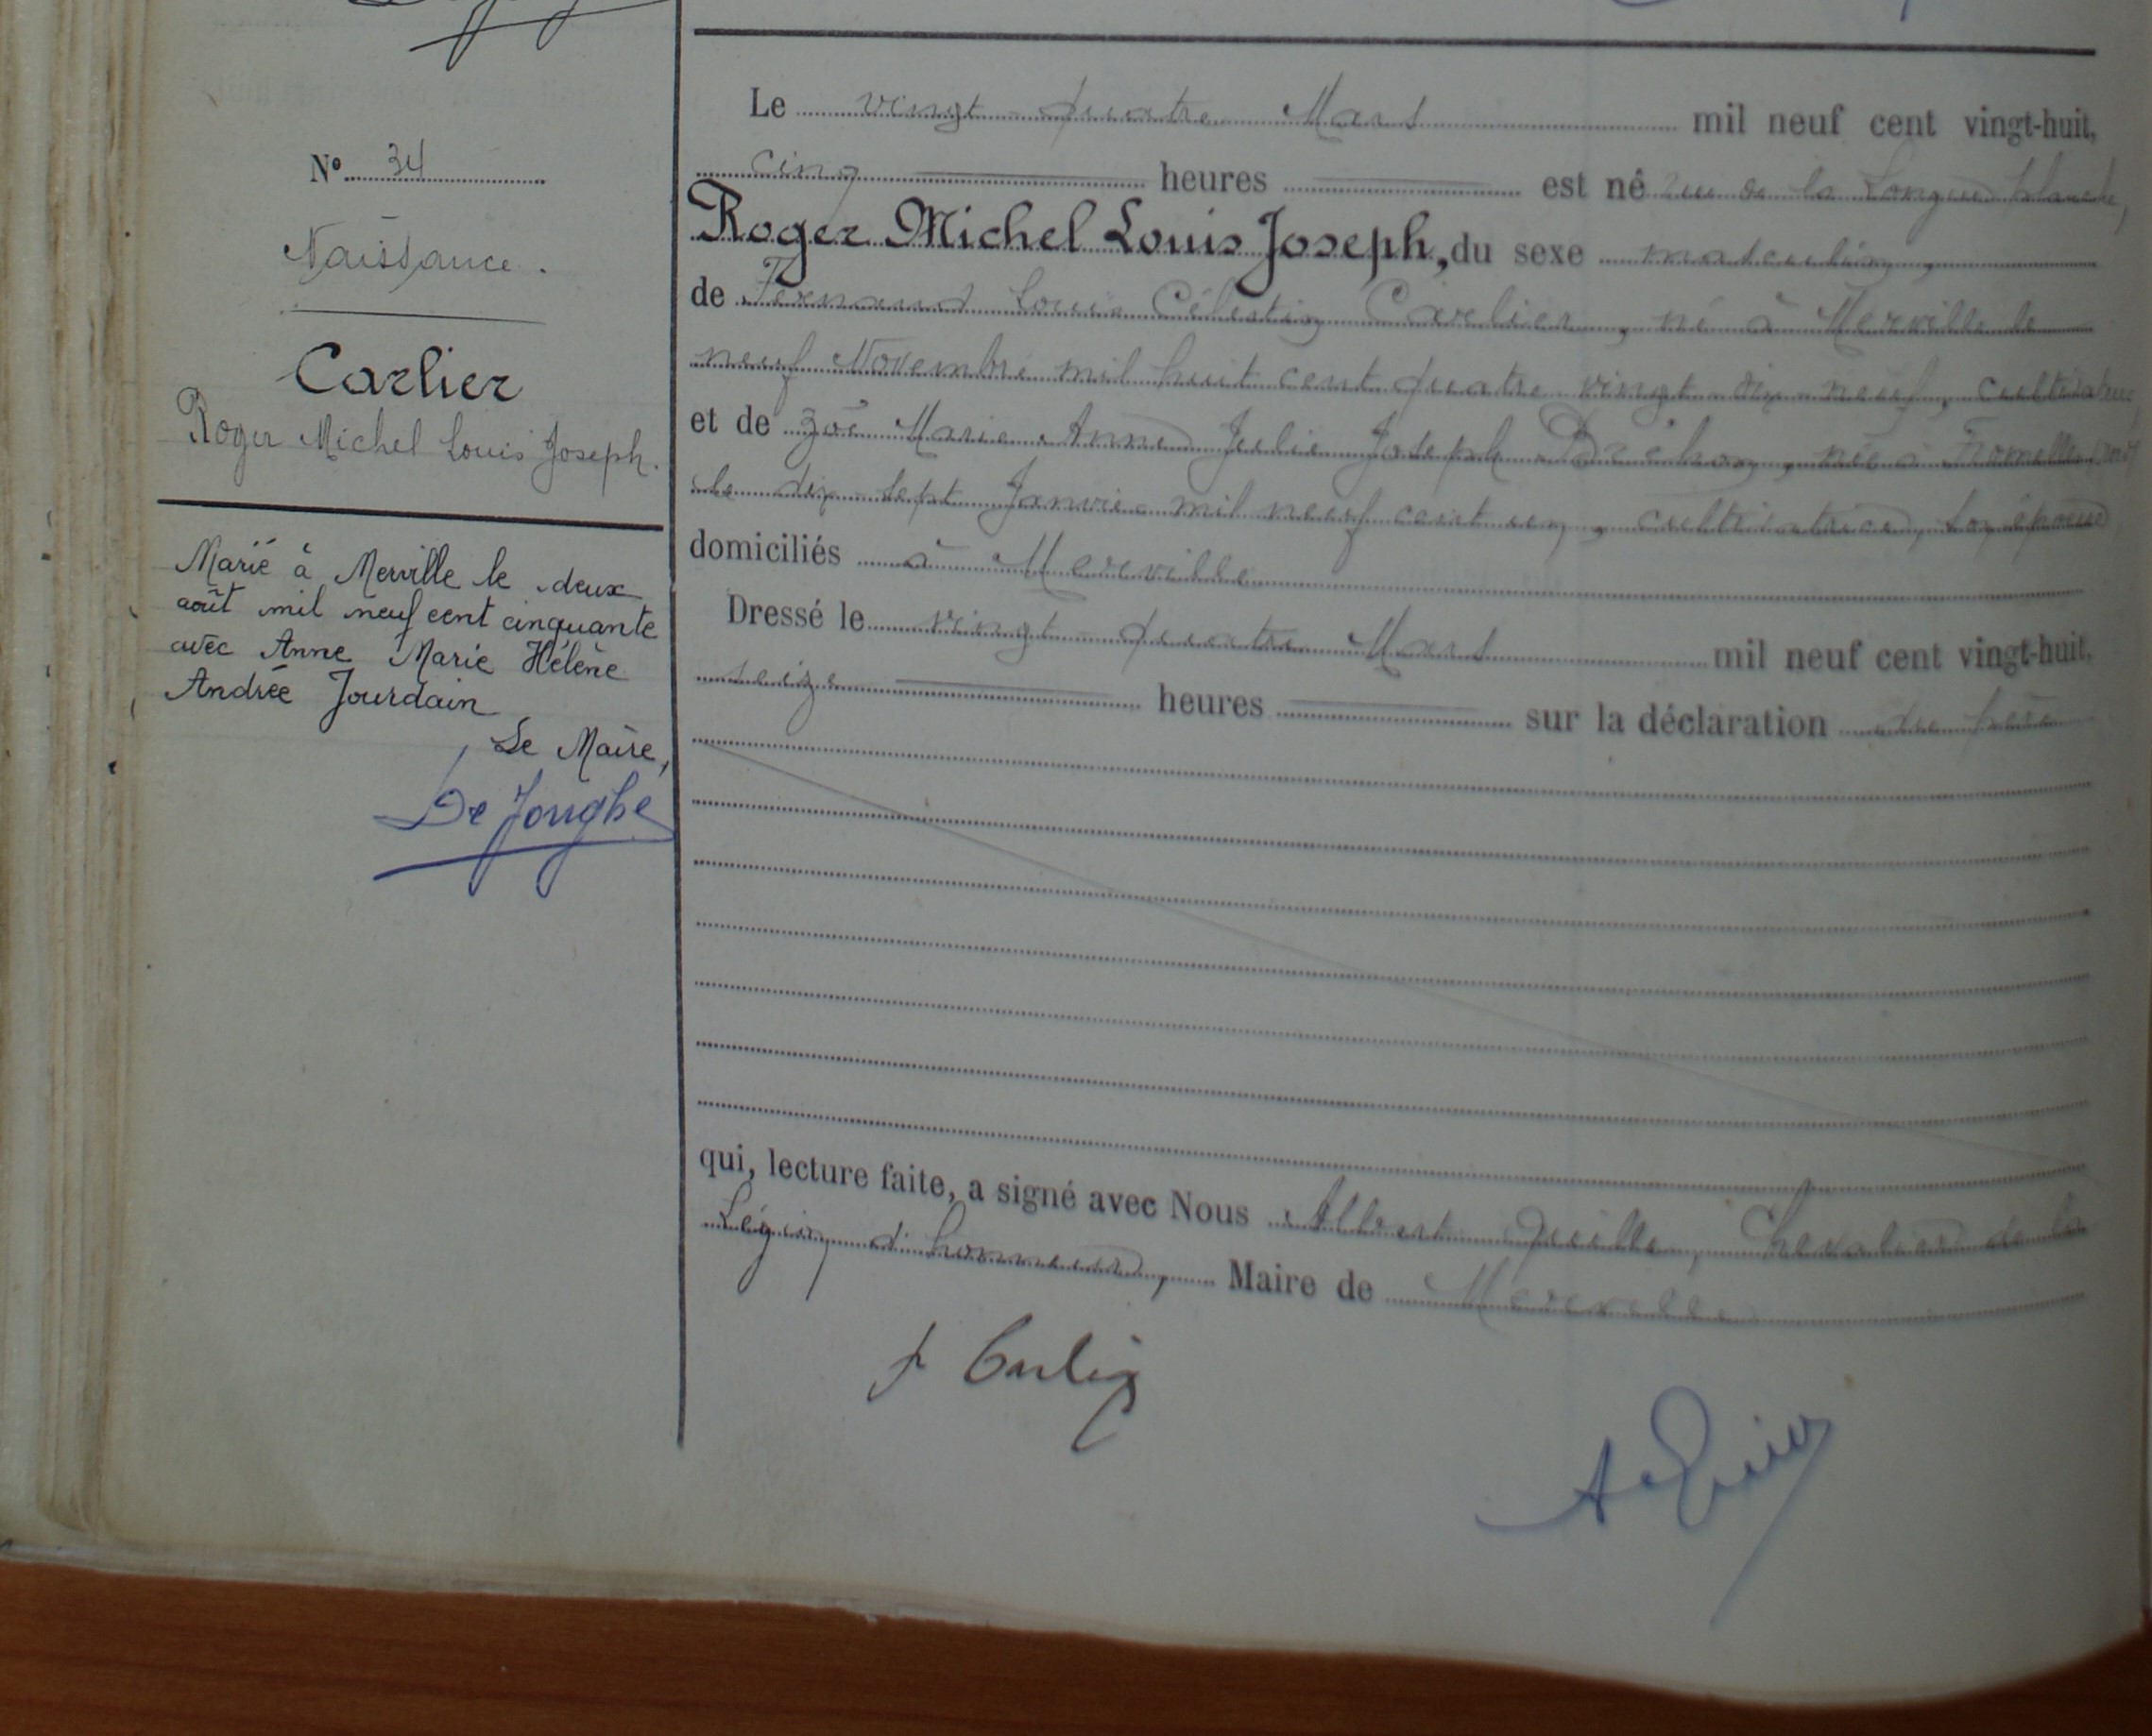 N° 34
Naissance.
Carlier
Roger Michel Louis Joseph.
Marié à Merville le deux
août mil neuf cent cinquante
avec Anne Marie Hélène
Andrée Jourdain
Le Maire,
De Jonghe
Le vingt-quatre Mars mil neuf cent vingt-huit,
cinq heures est né rue de la Longue planche,
Roger Michel Louis Joseph, du sexe masculin,
de Fernand Louis Célestin Carlier, né à Merville le
neuf Novembre mil huit cent quatre vingt dix-neuf, cultivateur
et de Zoé Marie Anne Julie Joseph Bréhon, née à Fromelles
le dix-sept Janvier mil neuf cent un, cultivatrice, son épouse
domiciliés à Merville
Dressé le vingt-quatre Mars mil neuf cent vingt-huit.
seize heures sur la déclaration du père
qui, lecture faite, a signé avec Nous Albert Quille, Chevalier de la
Légion d'honneur, Maire de Merville
f Carlier